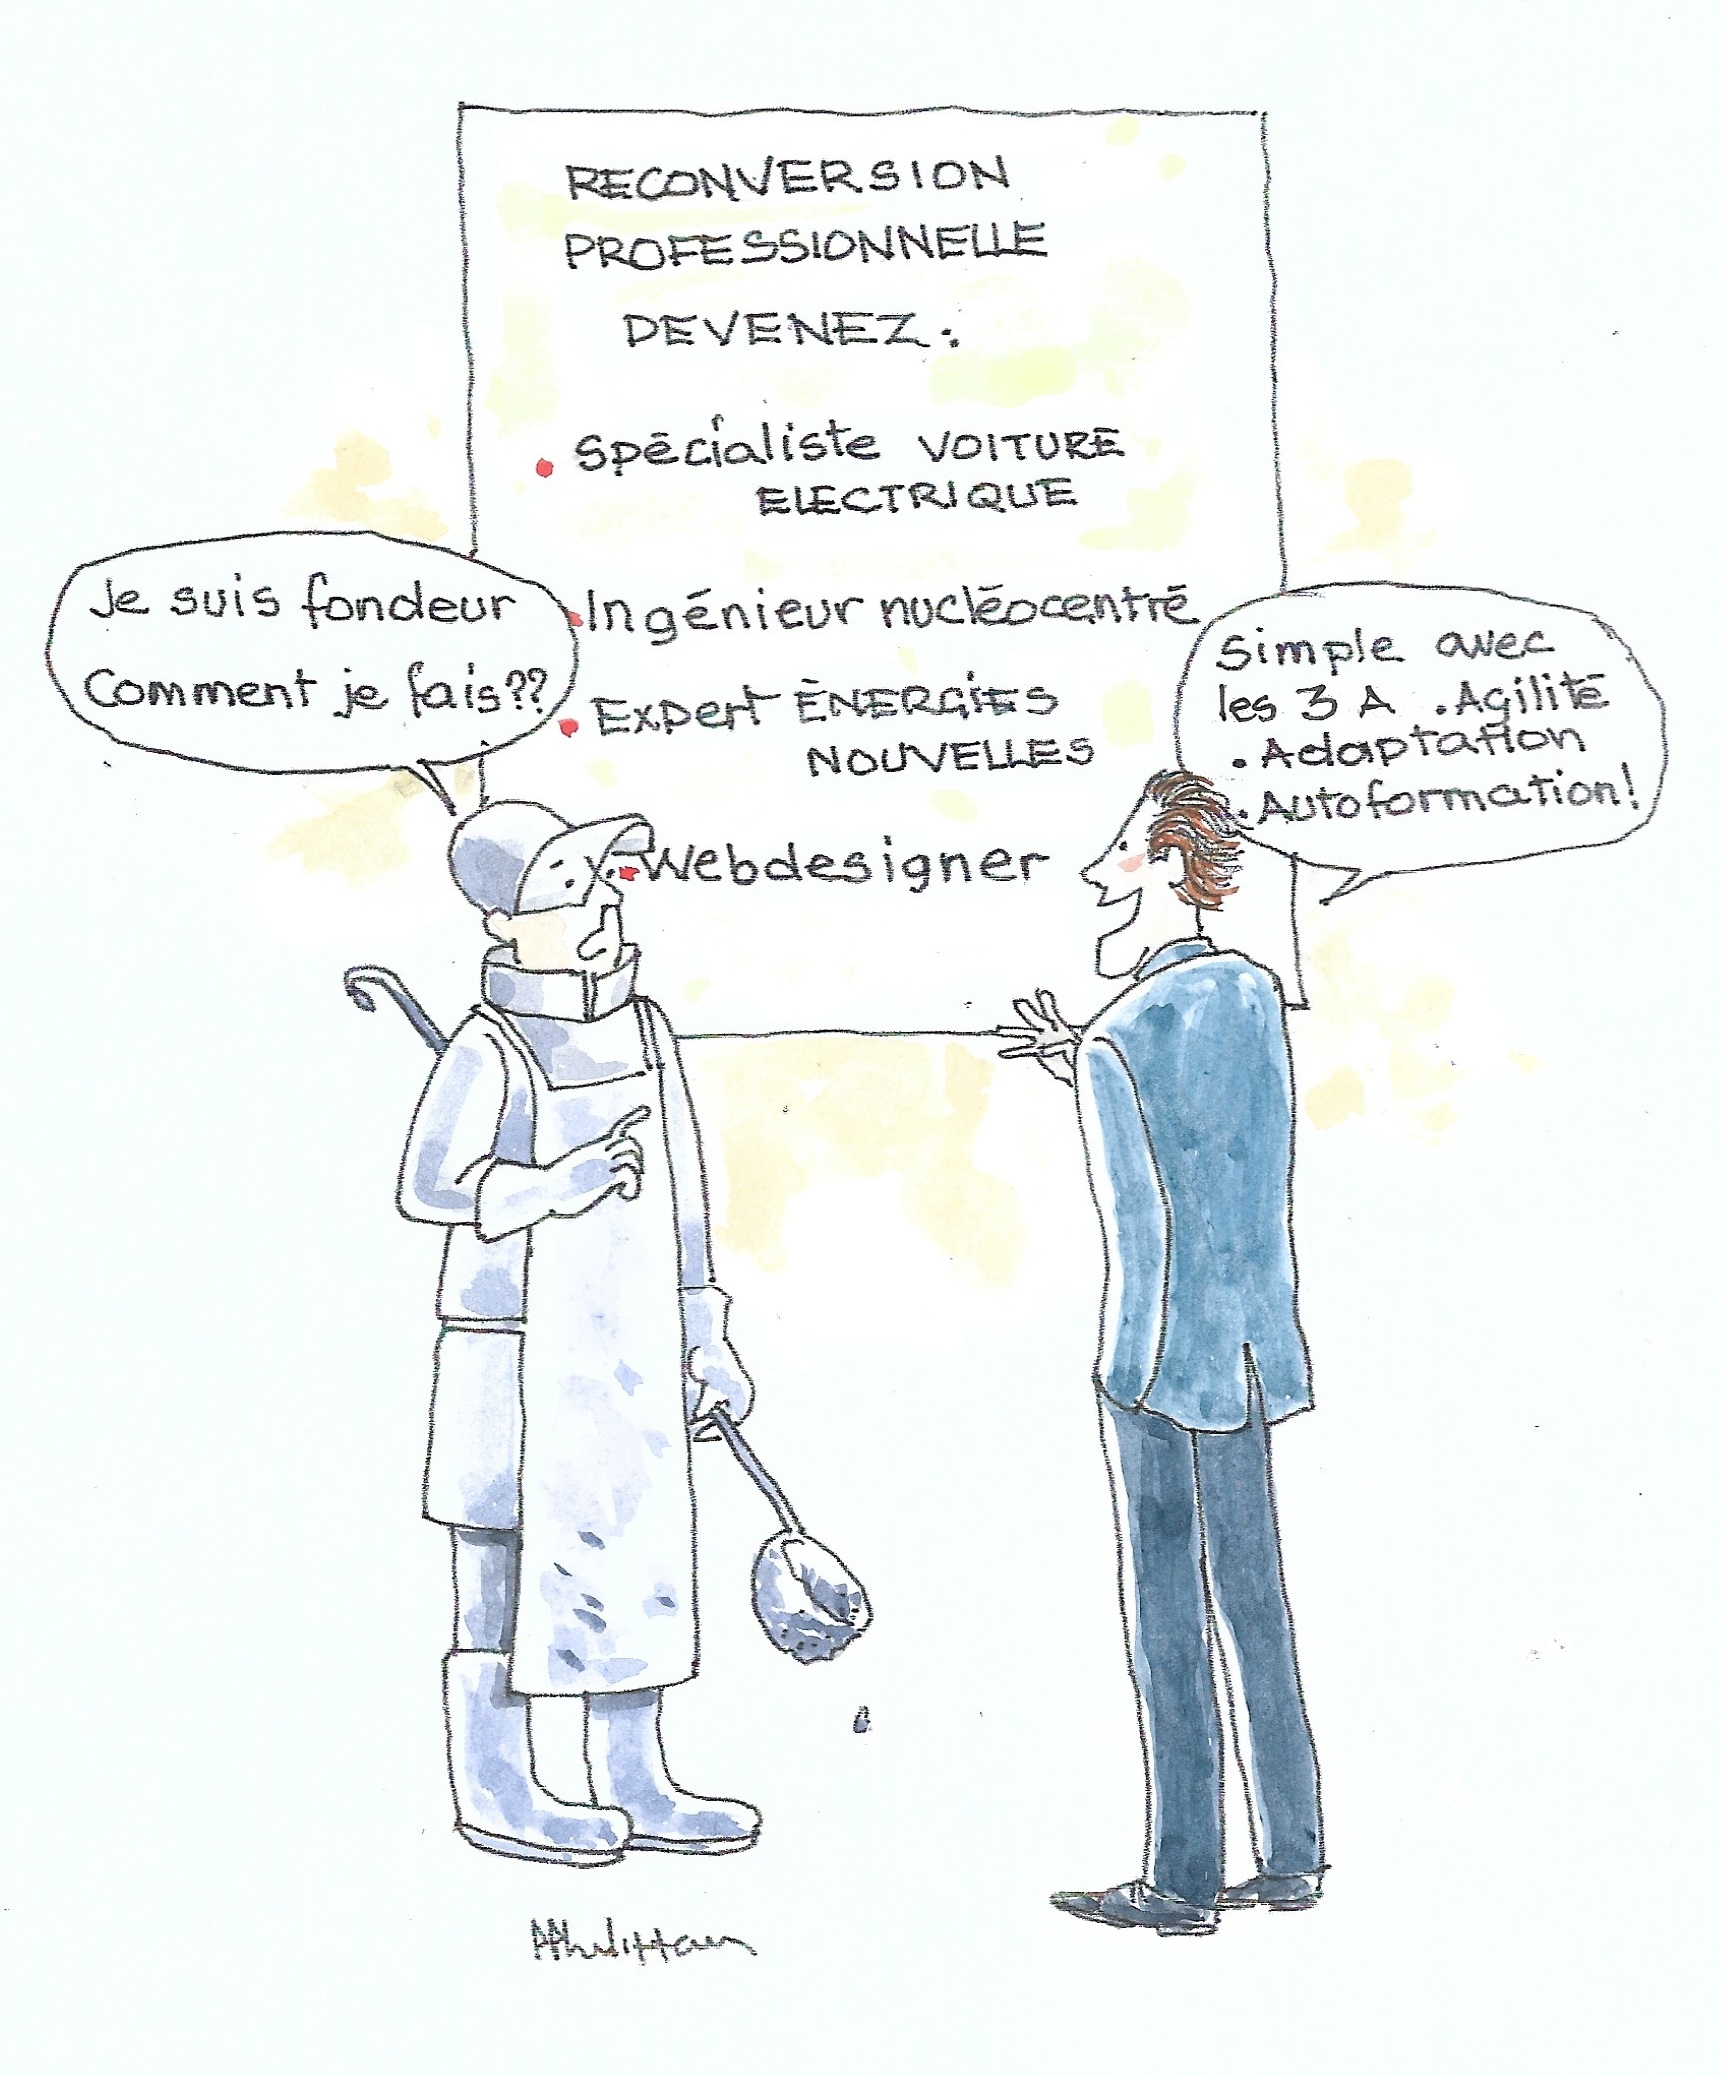 RECONVERSION
PROFESSIONNELLE
DEVENEZ:
• Spécialiste VOITURE
ELECTRIQUE
• Ingénieur nucléocentré
• Expert ÉNERGIES
NOUVELLES
• Webdesigner
Je suis fondeur
Comment je fais??
Simple avec
les 3 A . Agilité
. Adaptation
. Autoformation!